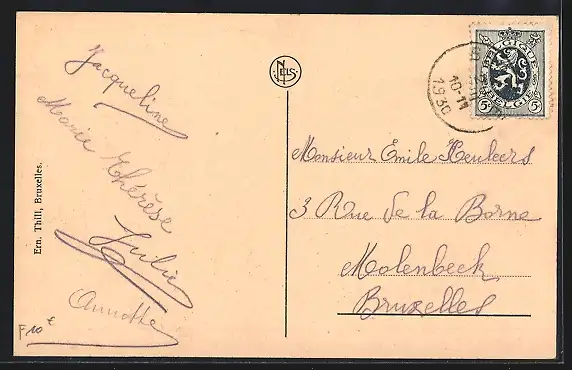 Jacqueline
Marie Thérèse
Julie
Annette
F 10 €
Ern. Thill, Bruxelles.
NELS
10-11
1930
BELGIQUE
BELGIË
5 5
Monsieur Émile Heulers
3 Rue de la Borne
Molenbeek
Bruxelles